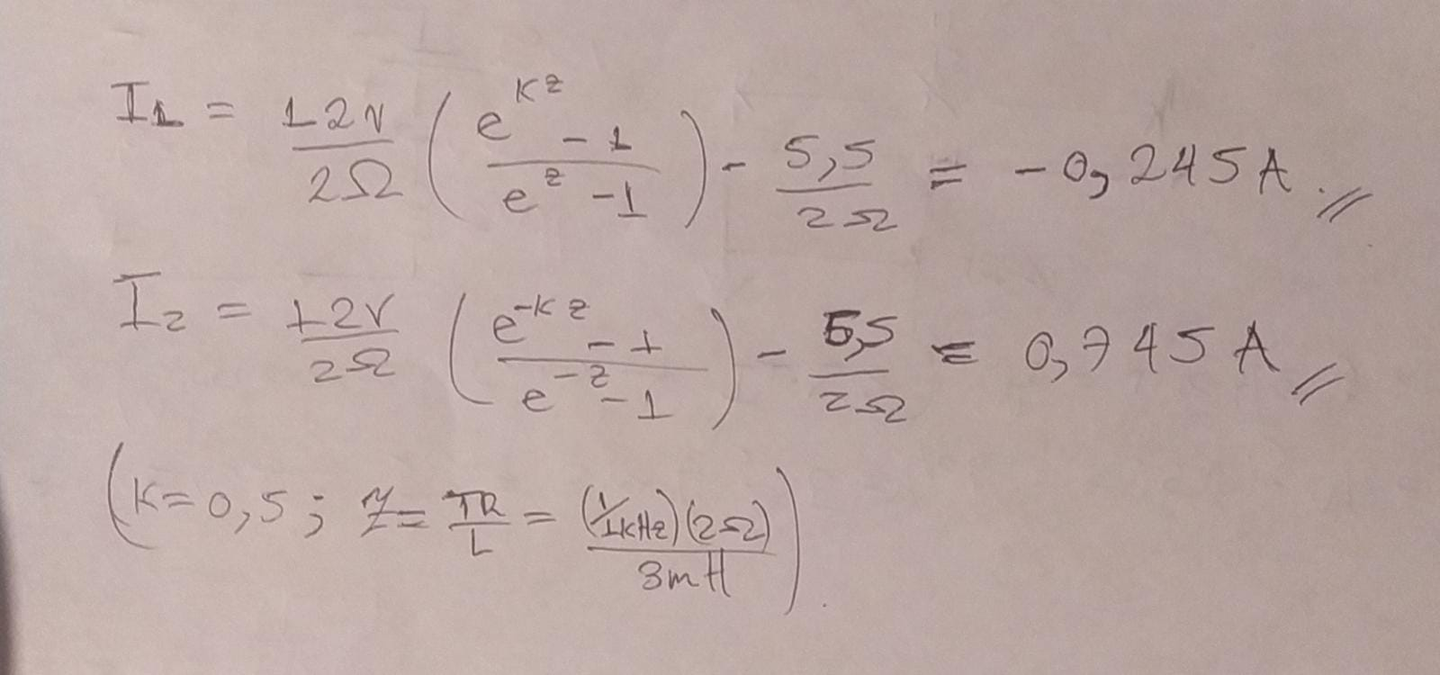 I1 = 12V/2Ω ( (e^KZ - 1)/(e^Z - 1) ) - 5,5/2Ω = -0,245A.//
I2 = 12V/2Ω ( (e^-KZ - 1)/(e^-Z - 1) ) - 5,5/2Ω = 0,745A//
(K=0,5; Z = TR/L = (1/1kHz)(2Ω)/3mH).